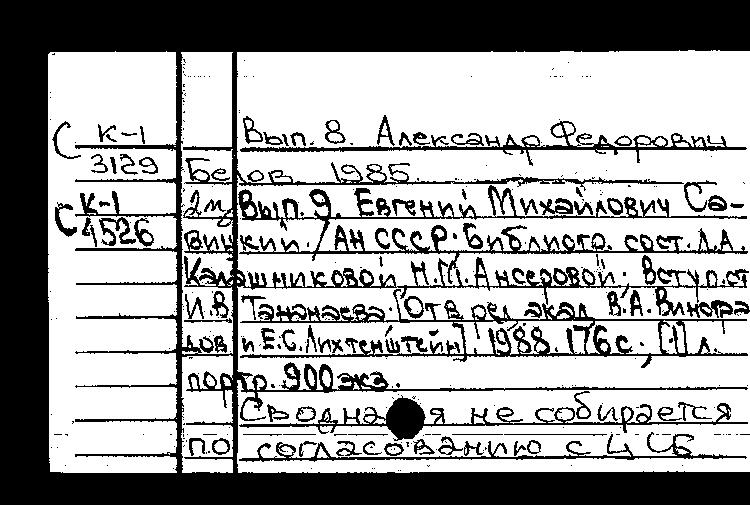 С К-1 Вып. 8. Александр Федорович
3129 Белов 1985.
С К-1 2м, Вып. 9. Евгений Михайлович Са-
4526 вицкий. / АН СССР. Библиогр. сост. Л.А.
Калашниковой, Н.М. Ансеровой; вступ. ст.
И.В. Тананаева. [Отв. ред. акад. В.А. Виногра
дов и Е.С. Лихтенштейн]. 1988. 176 с.; [1] л.
портр. 900 экз.
Сводная не собирается
по согласованию с ЦСБ